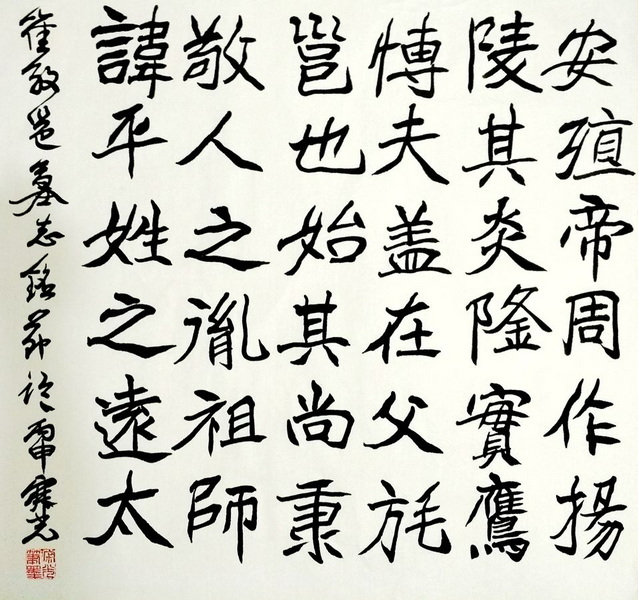 安殖帝周作揚
陵其炎隆實鷹
愽夫盖在父旄
邕也始其尚秉
敬人之胤祖師
諱平姓之遠太
崔敬邕墓志銘節臨